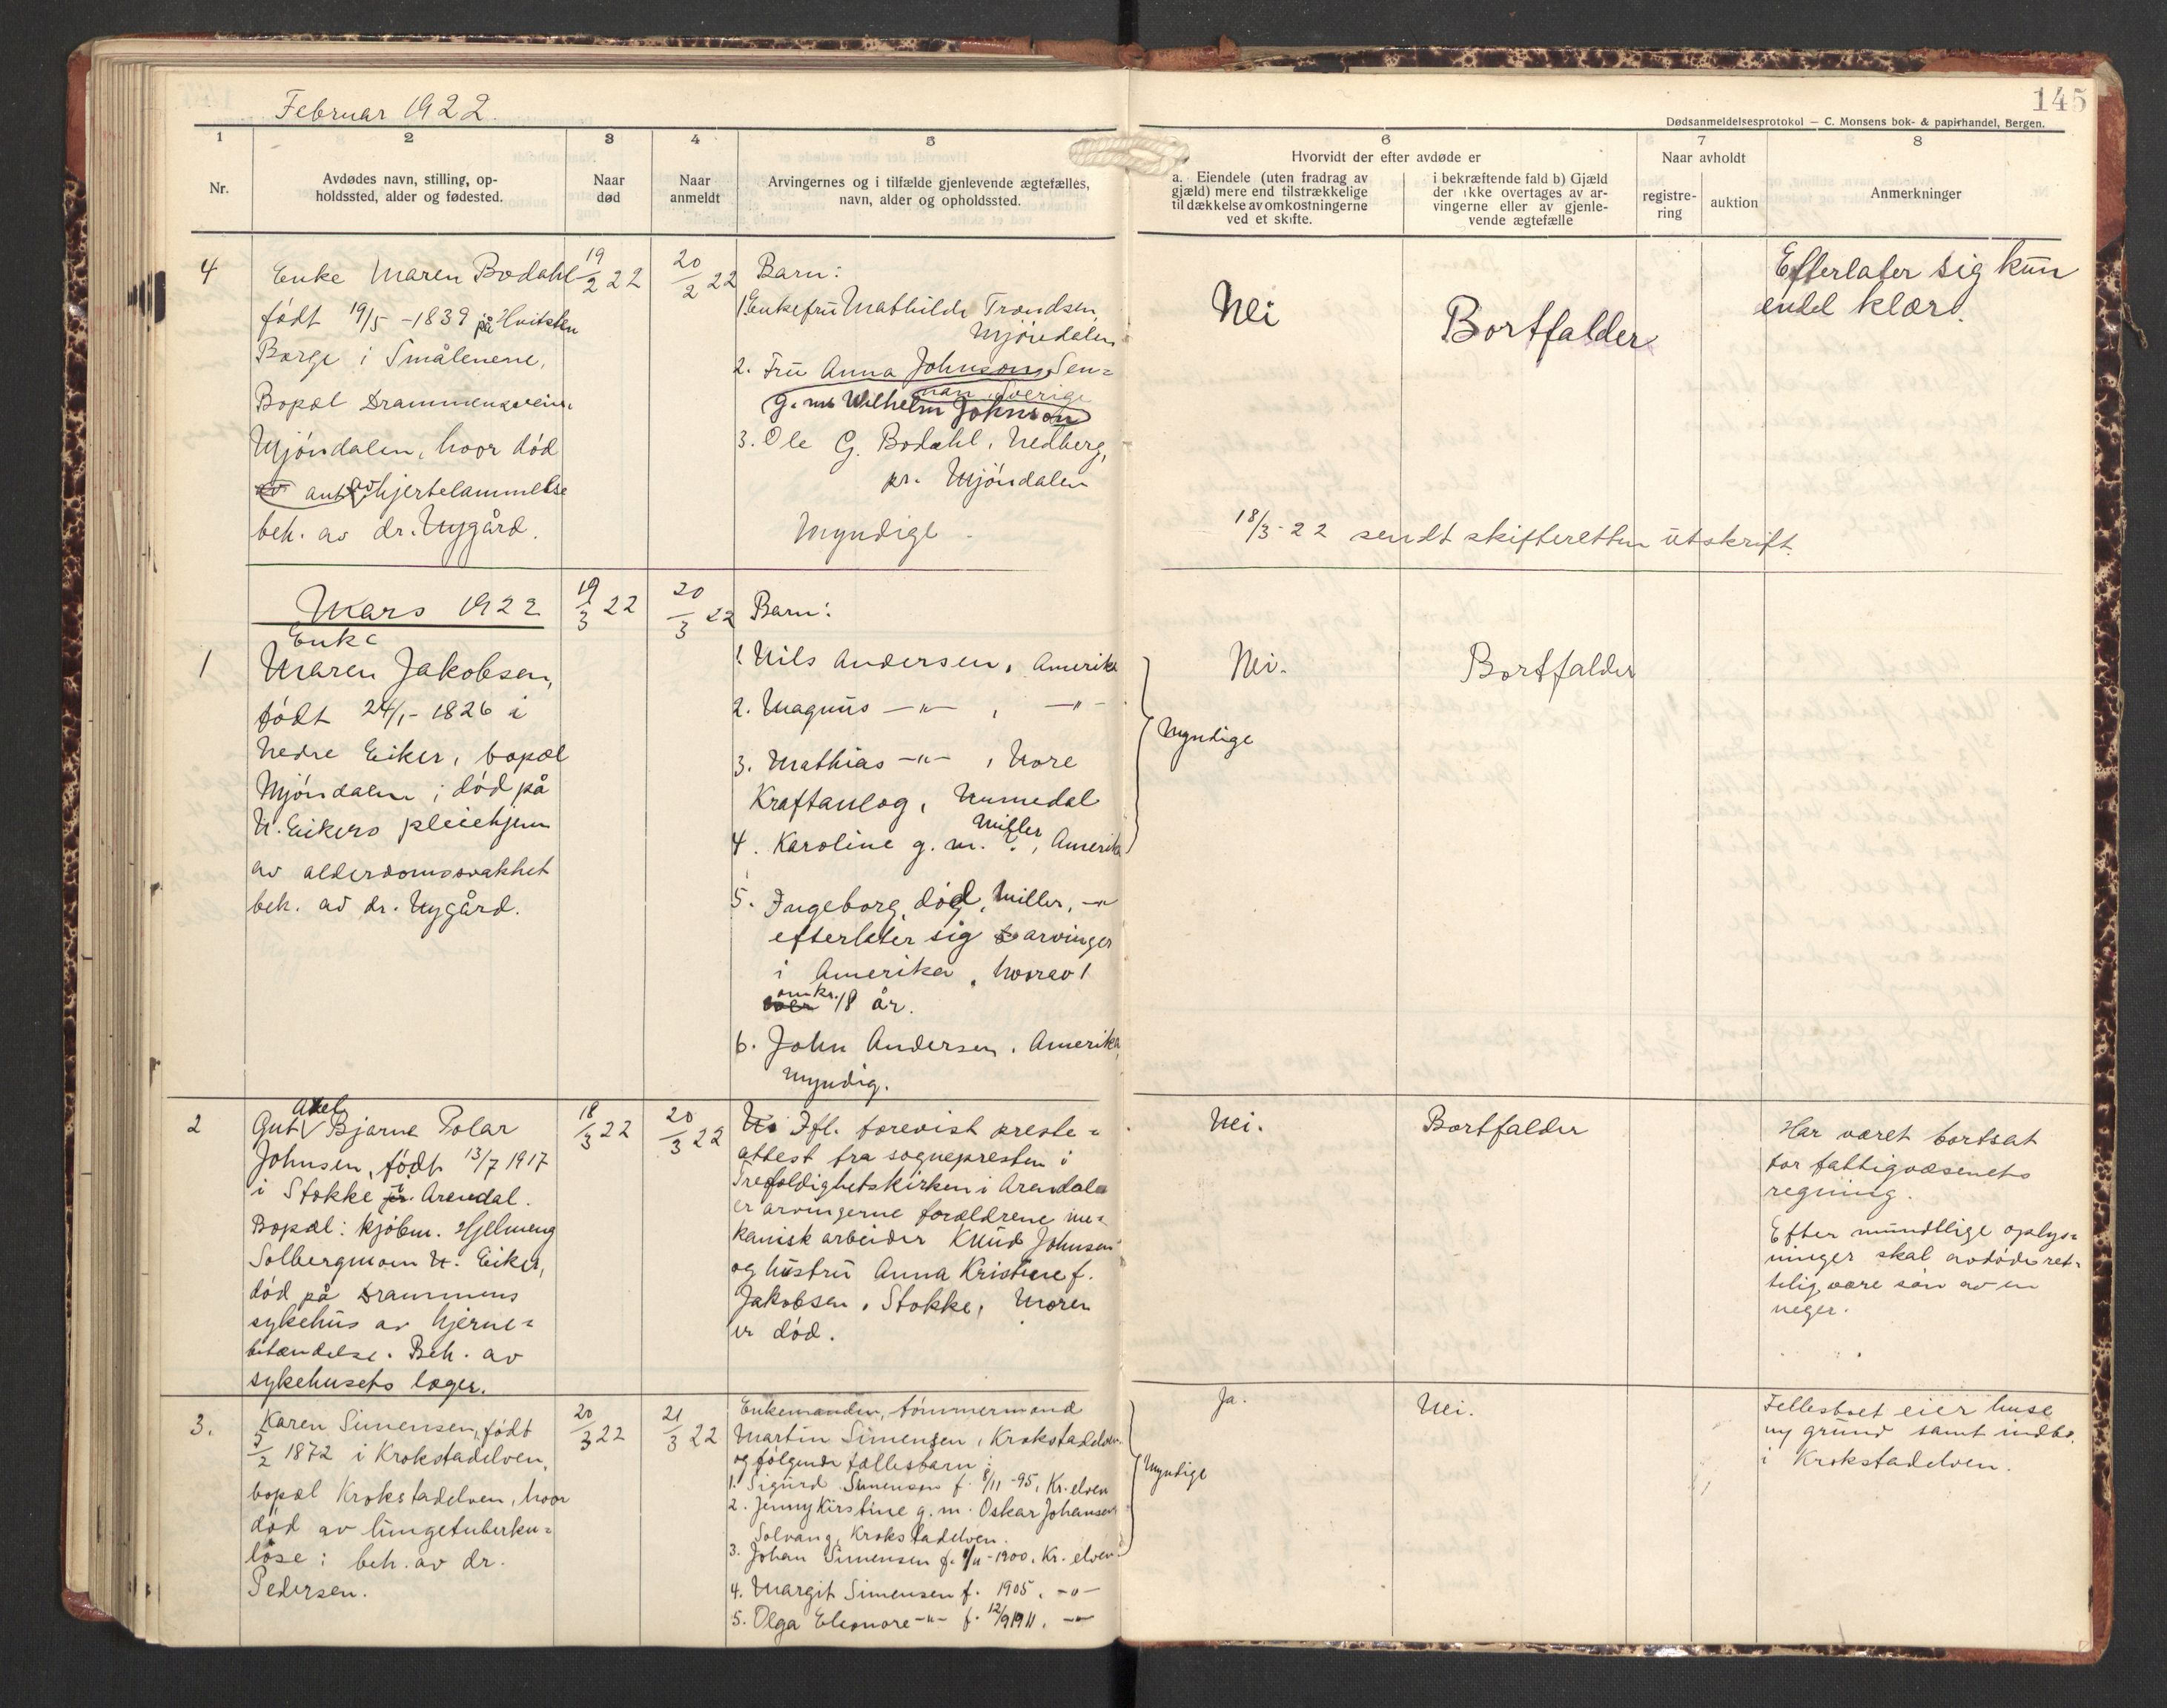 145
Februar 1922.
Dødsanmeldelsesprotokol — C. Monsens bok- & papirhandel, Bergen.
1
2
3
4
5
6
7
8
Nr.
Avdødes navn, stilling, op-
holdssted, alder og fødested.
Naar
død
Naar
anmeldt
Arvingernes og i tilfælde gjenlevende ægtefælles,
navn, alder og opholdssted.
Hvorvidt der efter avdøde er
a. Eiendele (uten fradrag av
gjæld) mere end tilstrækkelige
til dækkelse av omkostningerne
ved et skifte.
i bekræftende fald b) Gjæld
der ikke overtages av ar-
vingerne eller av gjenle-
vende ægtefælle
Naar avholdt
registre-
ring
auktion
Anmerkninger
4
Enke Maren Bodahl
født 19/5 -1839 på Hvitsten
Borge i Smålenene,
Bopæl Drammensveien
Mjøndalen, hvor død
ant. av hjertelammelse
beh. av dr. Nygård.
19/2 22
20/2 22
Barn:
1. Enkefru Mathilde Trondsen,
Mjøndalen
2. Fru Anna Johnson, Sen=
nan Sverige
g. m. Wilhelm Johnson
3. Ole G. Bodahl, Nedberg,
pr. Mjøndalen
Myndige
Nei
Bortfalder
Efterlater sig kun
endel klær.
18/3-22 sendt skifteretten utskrift.
Mars 1922
1
Enke
Maren Jakobsen,
født 24/1- 1826 i
Nedre Eiker, bopæl
Mjøndalen; død på
N. Eikers pleiehjem
av alderdomssvakhet
beh. av dr. Nygård.
19/3 22
20/3 22
Barn:
1. Nils Andersen, Amerika
2. Magnus —"— , —"—
3. Mathias —"— , Nore
Kraftanlæg, Numedal
4. Karoline g. m. Miller ?, Amerika
5. Ingeborg, død, Miller, —"
efterlater sig arvinger
i Amerika, hvorav 1
omkr. 18 år.
6. John Andersen, Amerika,
myndig.
Myndige
Nei.
Bortfalder
2
Gut Axel Bjarne Polar
Johnsen, født 13/7 1917
i Stokke i Arendal.
Bopæl: kjøbm. Hjelmeng
Solbergmoen N. Eiker,
død på Drammens
sykehus av hjerne=
betændelse. Beh. av
sykehusets læger.
18/3 22
20/3 22
Ifl. forevist preste=
attest fra sognepresten i
Trefoldighetskirken i Arendal
er arvingerne forældrene me=
kanisk arbeider Knud Johnsen
og hustru Anna Kristine f.
Jakobsen, Stokke, Moren
er død.
Nei.
Bortfalder
Har været bortsat
for fattigvæsenets
regning.
Efter mundtlige oplys=
ninger skal avdøde ret=
telig være søn av en
neger.
3.
Karen Simensen, født
/2 1872 i Krokstadelven,
bopæl Krokstadelven, hvor
død av lungetuberku=
lose: beh. av dr.
Pedersen.
20/3 22
21/3 22
Enkemanden, tømmermand
Martin Simensen, Krokstadelven
og følgende fællesbarn:
1. Sigurd Simensen f. 8/11 -95, Kr. elven
2. Jenny Kirstine g. m. Oskar Johansen
Solvang, Krokstadelven.
3. Johan Simensen f. /11 -1900, Kr. elven
4. Margit Simensen f. 1905, —"—
5. Olga Eleonore —"— f. 12/9 1911, —"—
Myndige
Ja.
Nei.
Fellesboet eier huse
ny grund samt indbo
i Krokstadelven.